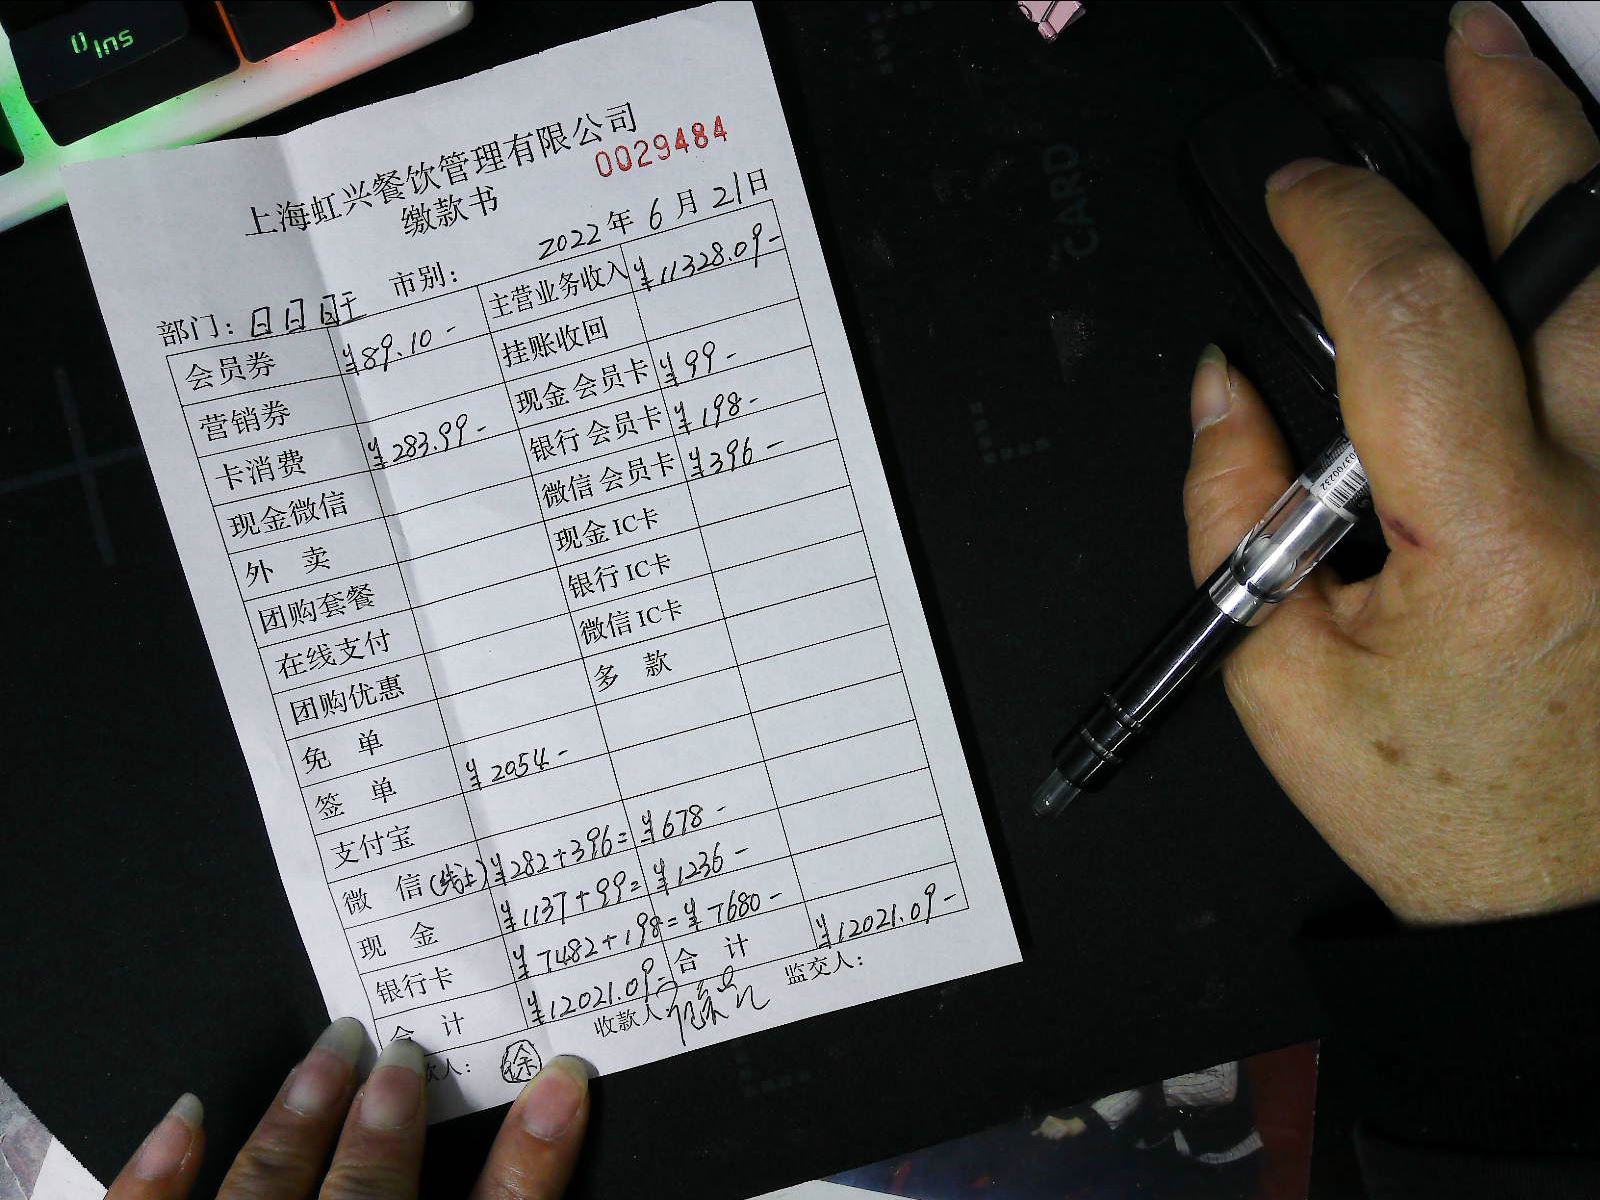 Ins
上海虹兴餐饮管理有限公司
缴款书
0029484
2022年6月21日
部门：日日日干 市别：
会员券 ¥89.10- 主营业务收入 ¥11328.09-
营销券 挂账收回
卡消费 ¥283.99- 现金会员卡 ¥99-
现金微信 银行会员卡 ¥198-
外卖 微信会员卡 ¥396-
团购套餐 现金IC卡
在线支付 银行IC卡
团购优惠 微信IC卡
免单 多款
签单 ¥2054-
支付宝
微信(线上) ¥282+396= ¥678-
现金 ¥1137+99= ¥1236-
银行卡 ¥7482+198= ¥7680-
合计 ¥12021.09- 合计 ¥12021.09-
款人： 徐 收款人： 监交人：
CARD
03700232